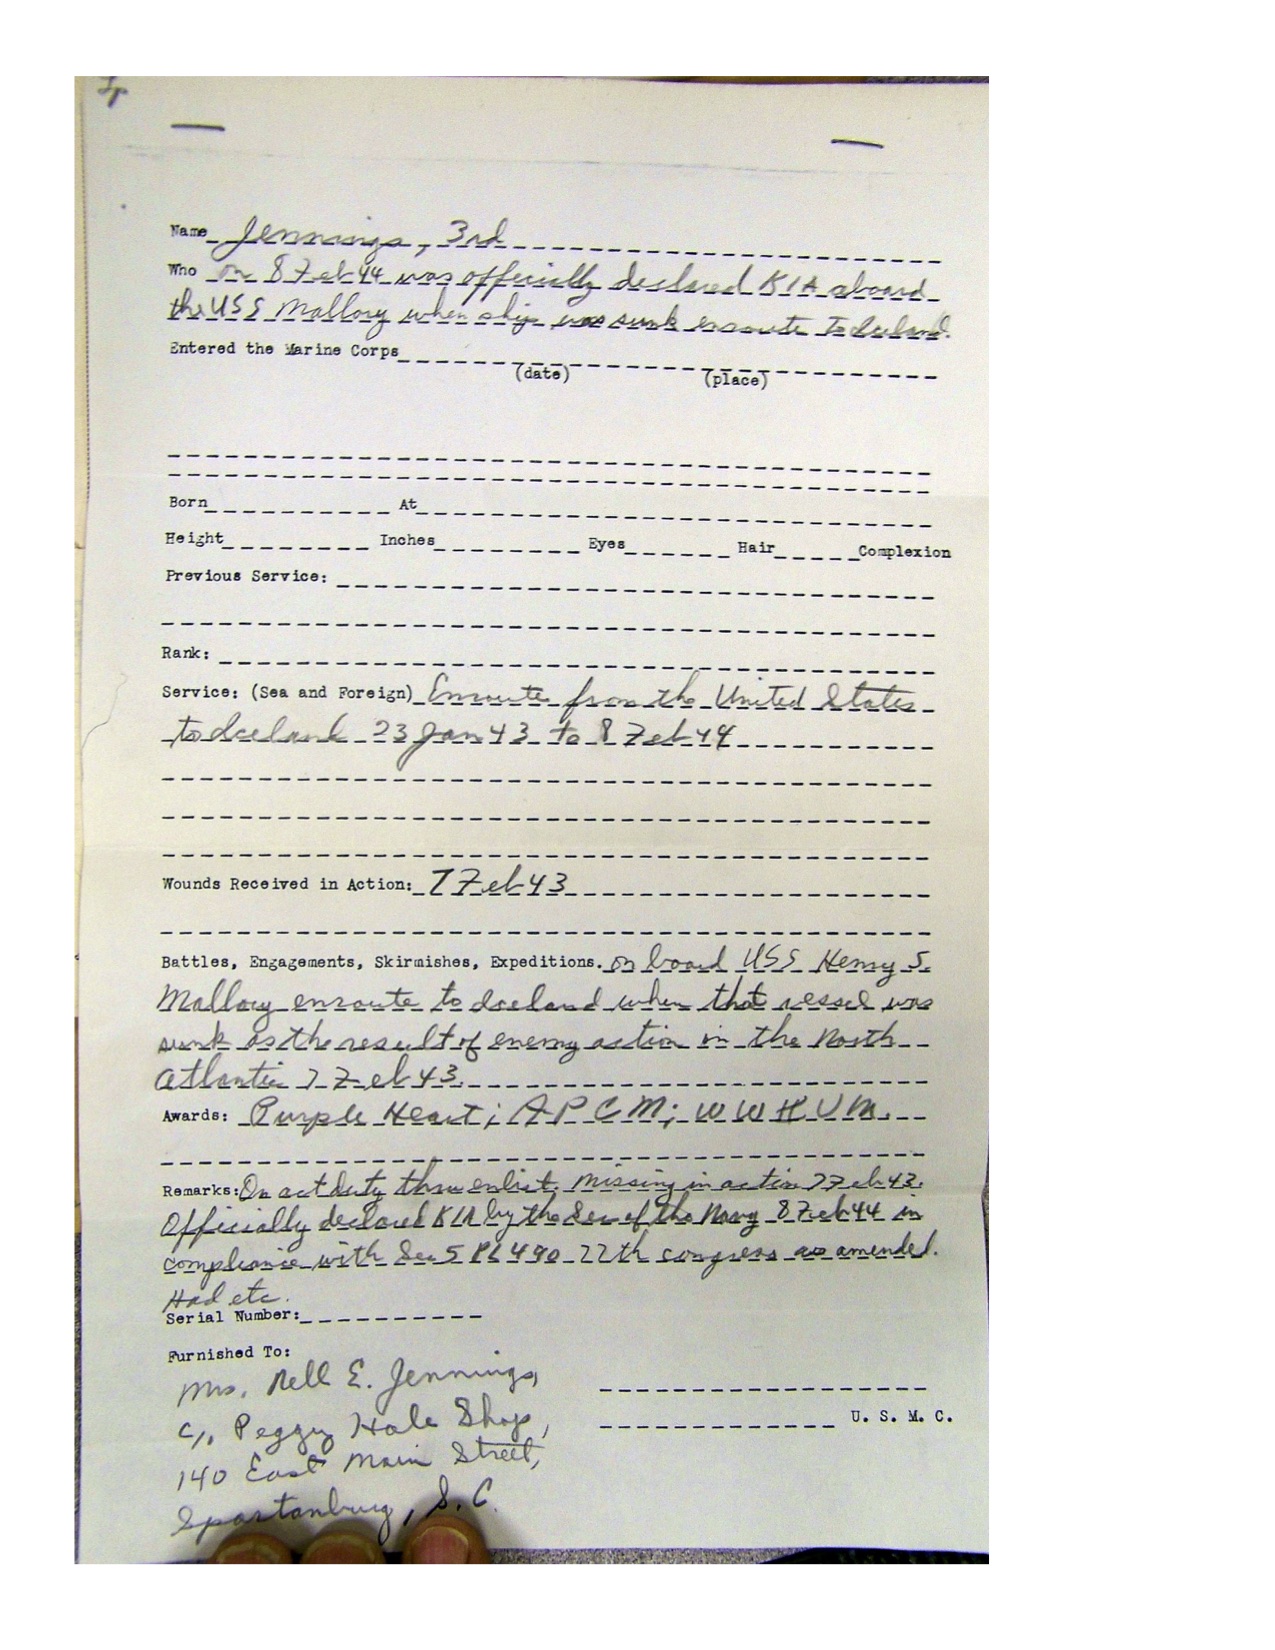 Name Jennings, 3rd
Who on 8 Feb 44 was officially declared KIA aboard
the USS Mallory when ship was sunk enroute to Iceland.
Entered the Marine Corps
(date) (place)
Born At
Height Inches Eyes Hair Complexion
Previous Service:
Rank:
Service: (Sea and Foreign) Enroute from the United States
to Iceland 23 Jan 43 to 8 Feb 44
Wounds Received in Action: 7 Feb 43
Battles, Engagements, Skirmishes, Expeditions. on board USS Henry S.
Mallory enroute to Iceland when that vessel was
sunk as the result of enemy action in the North
Atlantic 7 Feb 43.
Awards: Purple Heart; A P C M; W W II V M.
Remarks: On act duty thru enlist. Missing in action 7 Feb 43.
Officially declared KIA by the Sec of the Navy 8 Feb 44 in
compliance with Sec 5 PL 490 77th congress as amended.
Had etc.
Serial Number:
Furnished To:
Mrs. Nell E. Jennings,
c/o Peggy Hale Shop,
U. S. M. C.
140 East Main Street,
Spartanburg, S. C.